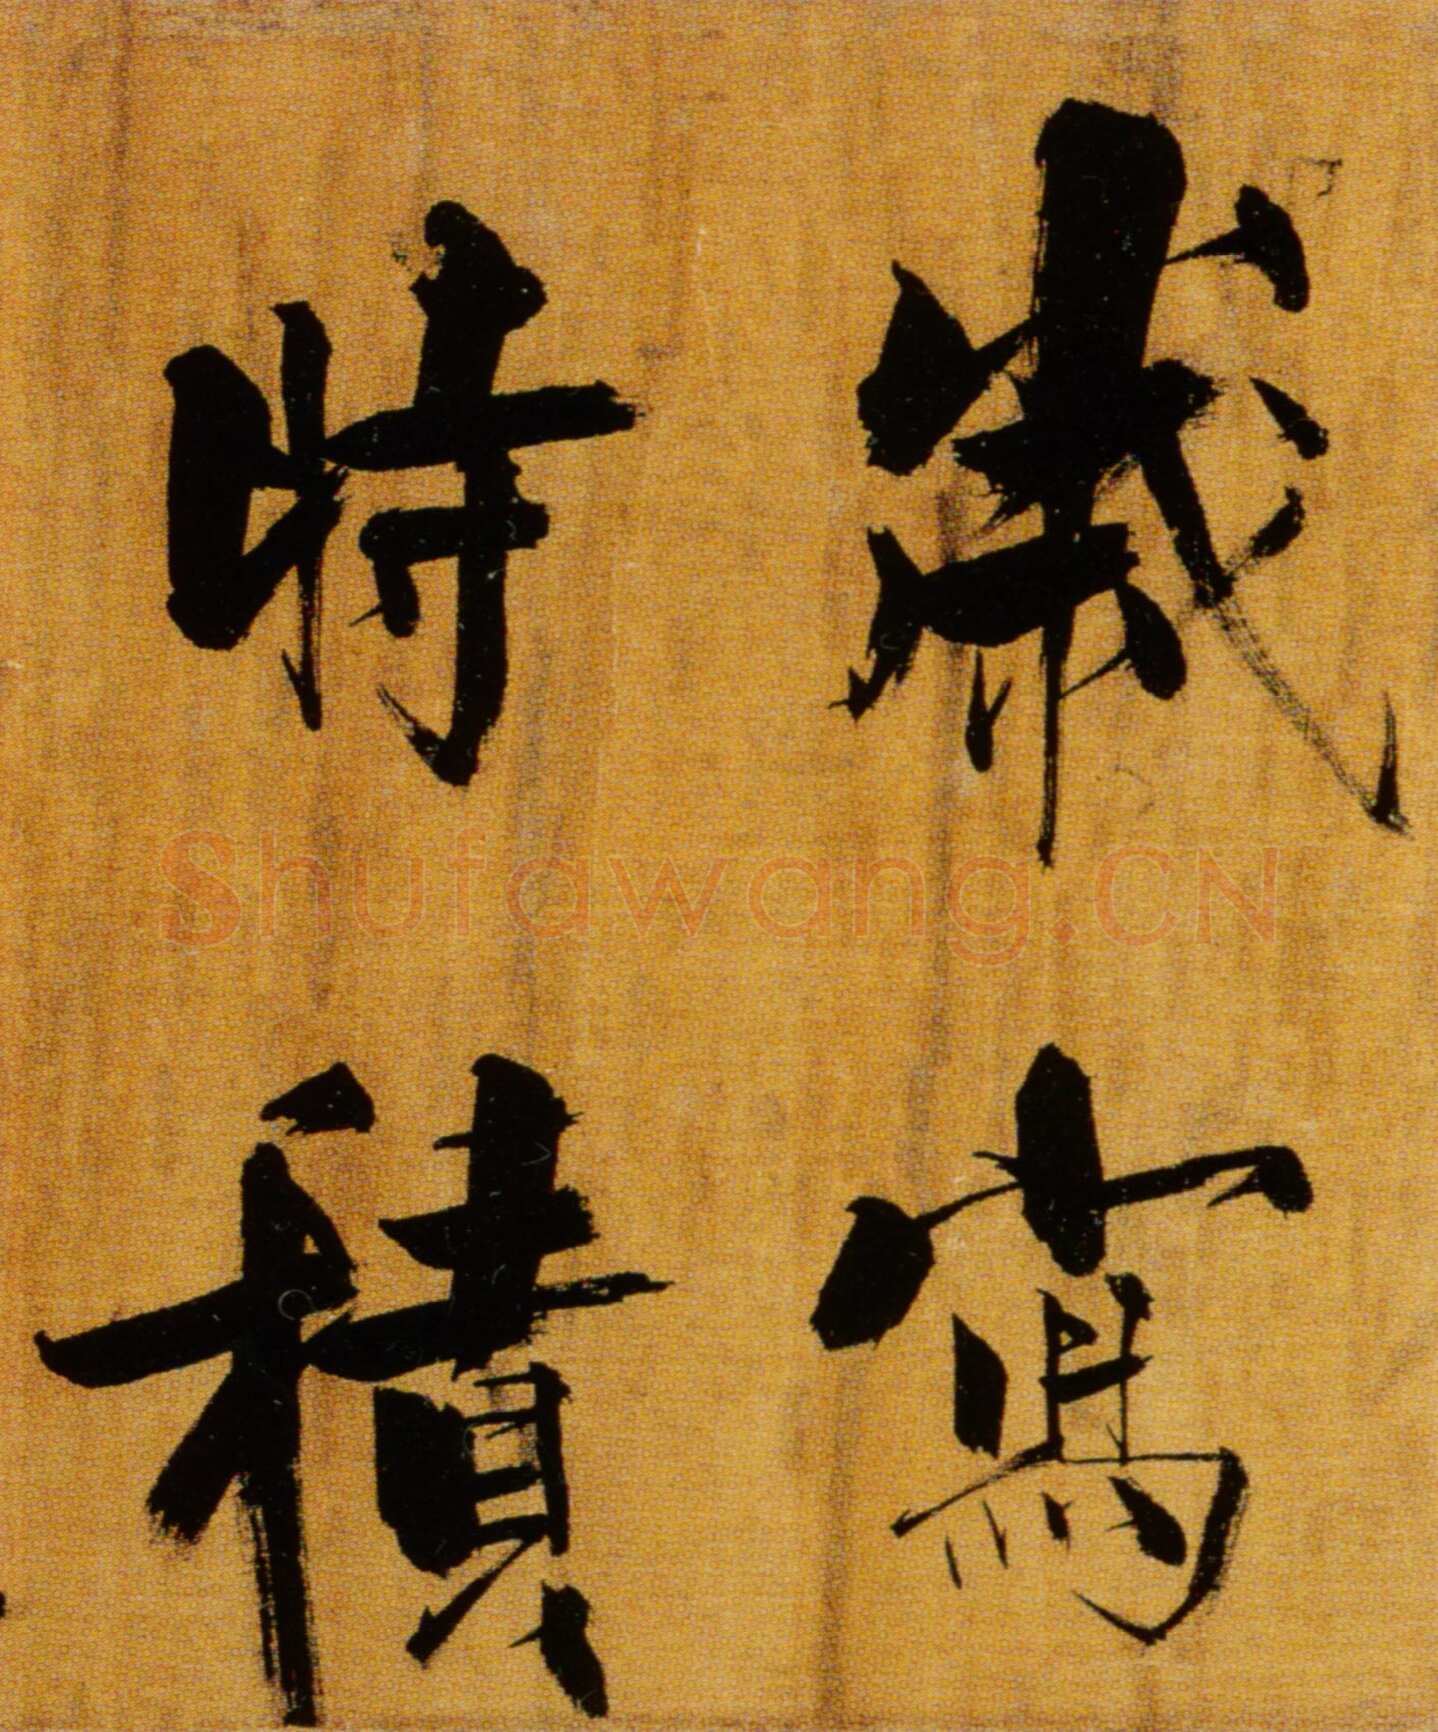 歲寫
時積
Shufawang.CN